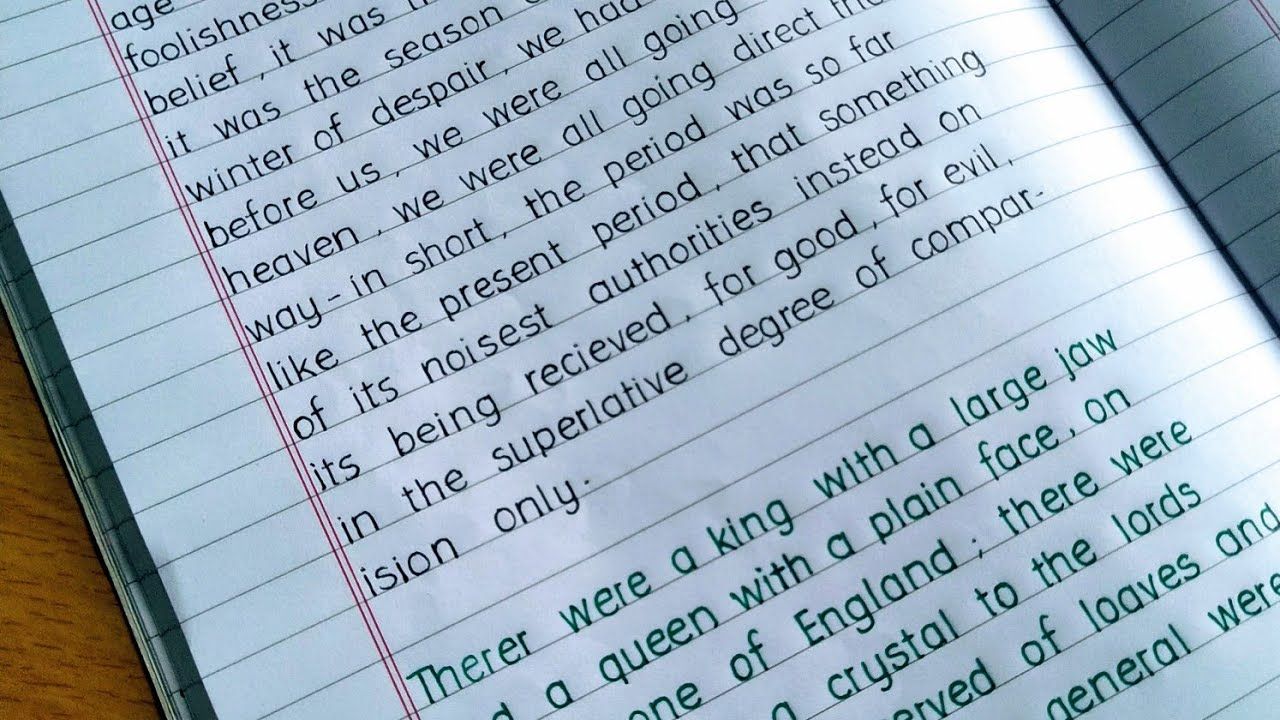 age
foolishness
belief, it was
it was the season
winter of despair, we had
before us, we were all going
heaven, we were all going direct
way-in short, the period was so far
like the present period, that something
of its noisest authorities instead on
its being recieved, for good, for evil,
in the superlative degree of compar-
ision only.
Therer were a king with a large jaw
a queen with a plain face, on
one of England; there were
a crystal to the lords
of loaves and
general were